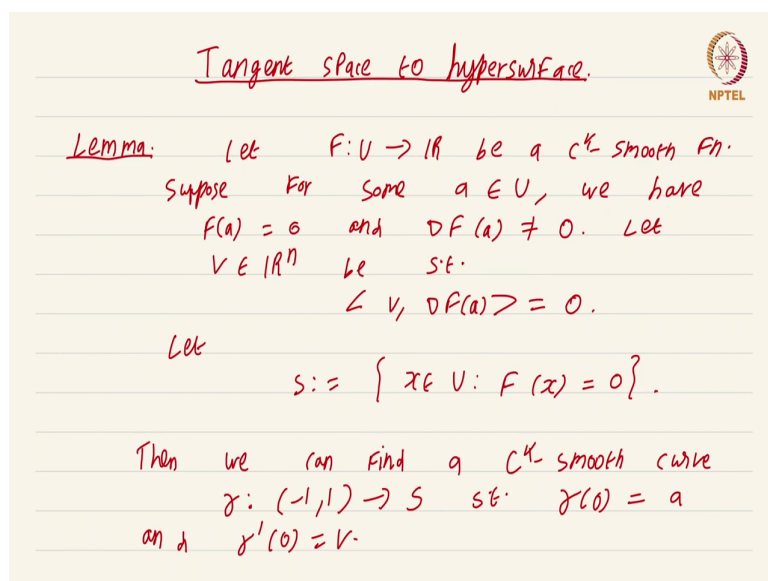 Tangent space to hypersurface.
NPTEL
Lemma: Let F: U → ℝ be a C^k- smooth Fn.
Suppose For some a ∈ U, we have
F(a) = 0 and DF(a) ≠ 0. Let
V ∈ ℝ^n be s.t.
< V, DF(a) > = 0.
Let
S := { x ∈ U : F(x) = 0 }.
Then we can find a C^k- smooth curve
γ : (-1, 1) → S st. γ(0) = a
and γ'(0) = V.